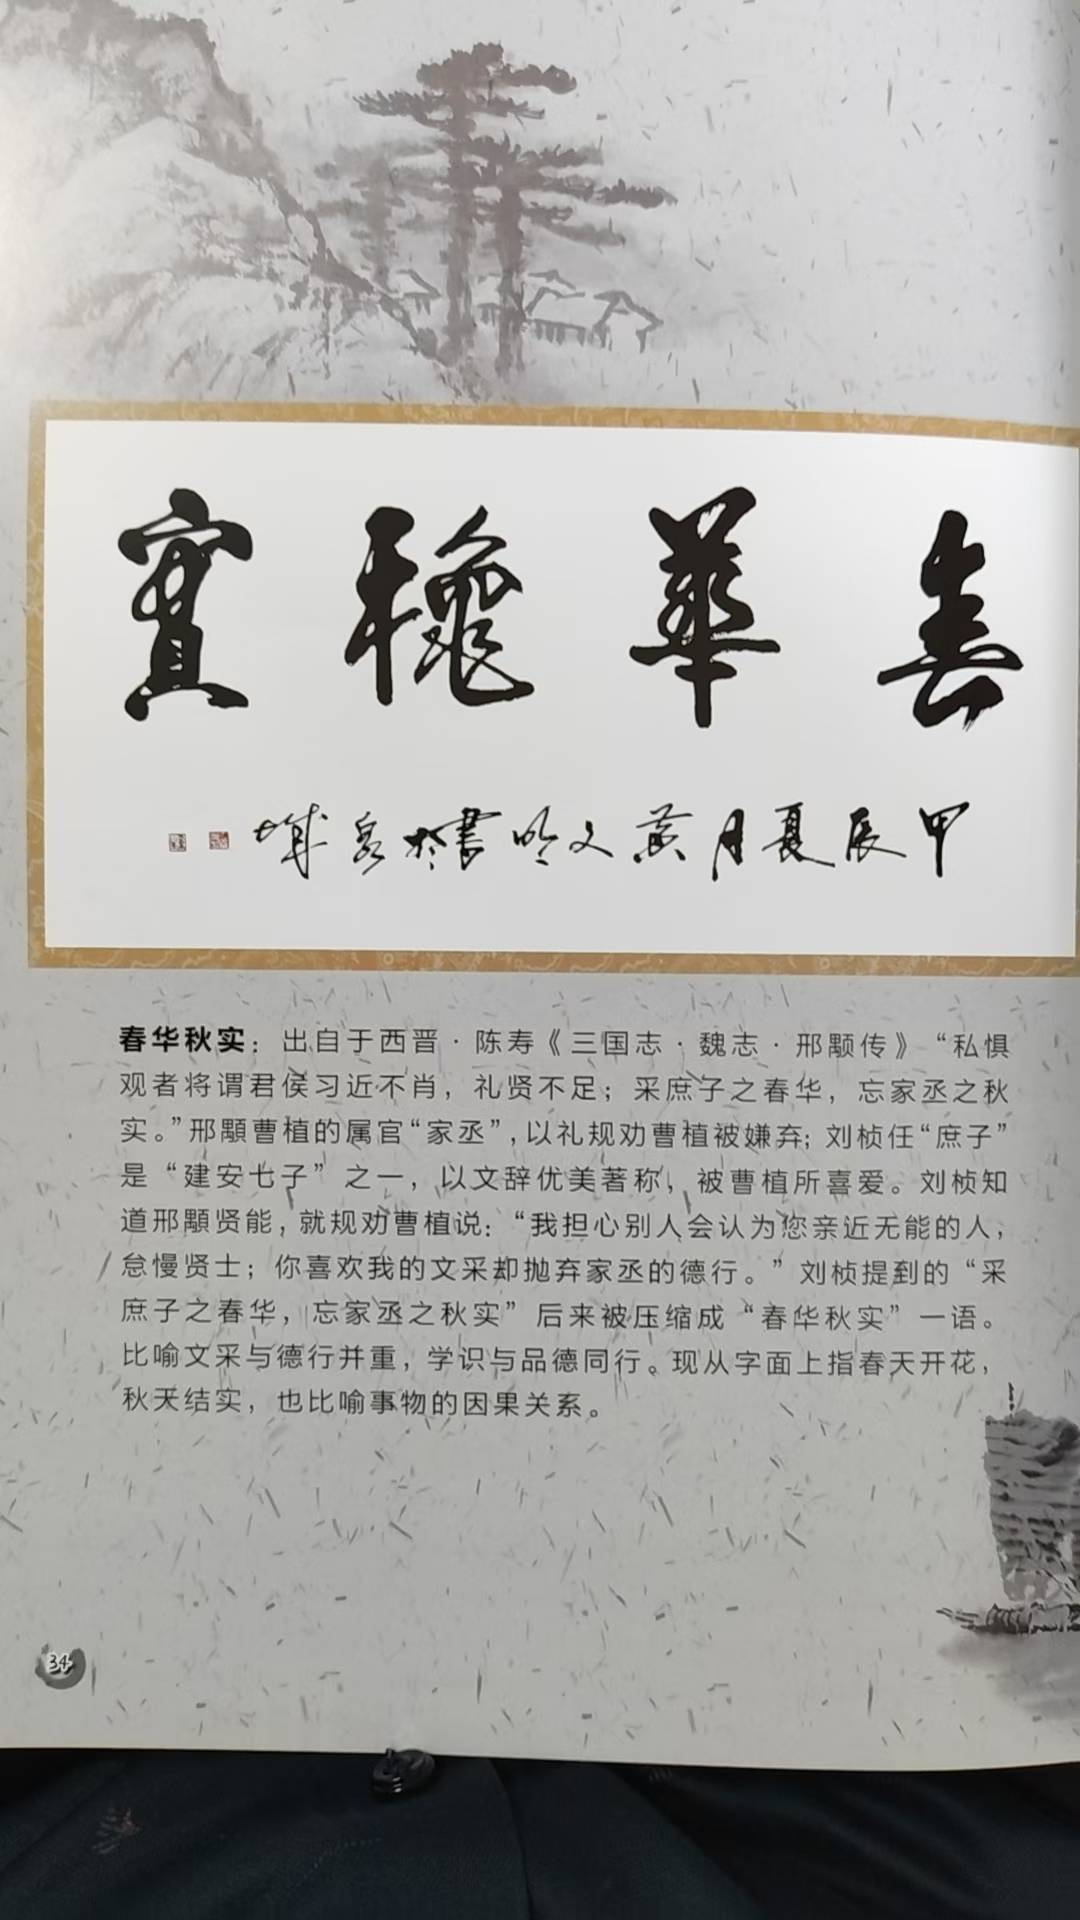 春華穐實
甲辰夏月黄文明書於泉城
春华秋实：出自于西晋·陈寿《三国志·魏志·邢颙传》“私惧
观者将谓君侯习近不肖，礼贤不足；采庶子之春华，忘家丞之秋
实。”邢顒曹植的属官“家丞”，以礼规劝曹植被嫌弃；刘桢任“庶子”
是“建安七子”之一，以文辞优美著称，被曹植所喜爱。刘桢知
道邢顒贤能，就规劝曹植说：“我担心别人会认为您亲近无能的人，
怠慢贤士；你喜欢我的文采却抛弃家丞的德行。”刘桢提到的“采
庶子之春华，忘家丞之秋实”后来被压缩成“春华秋实”一语。
比喻文采与德行并重，学识与品德同行。现从字面上指春天开花，
秋天结实，也比喻事物的因果关系。
34